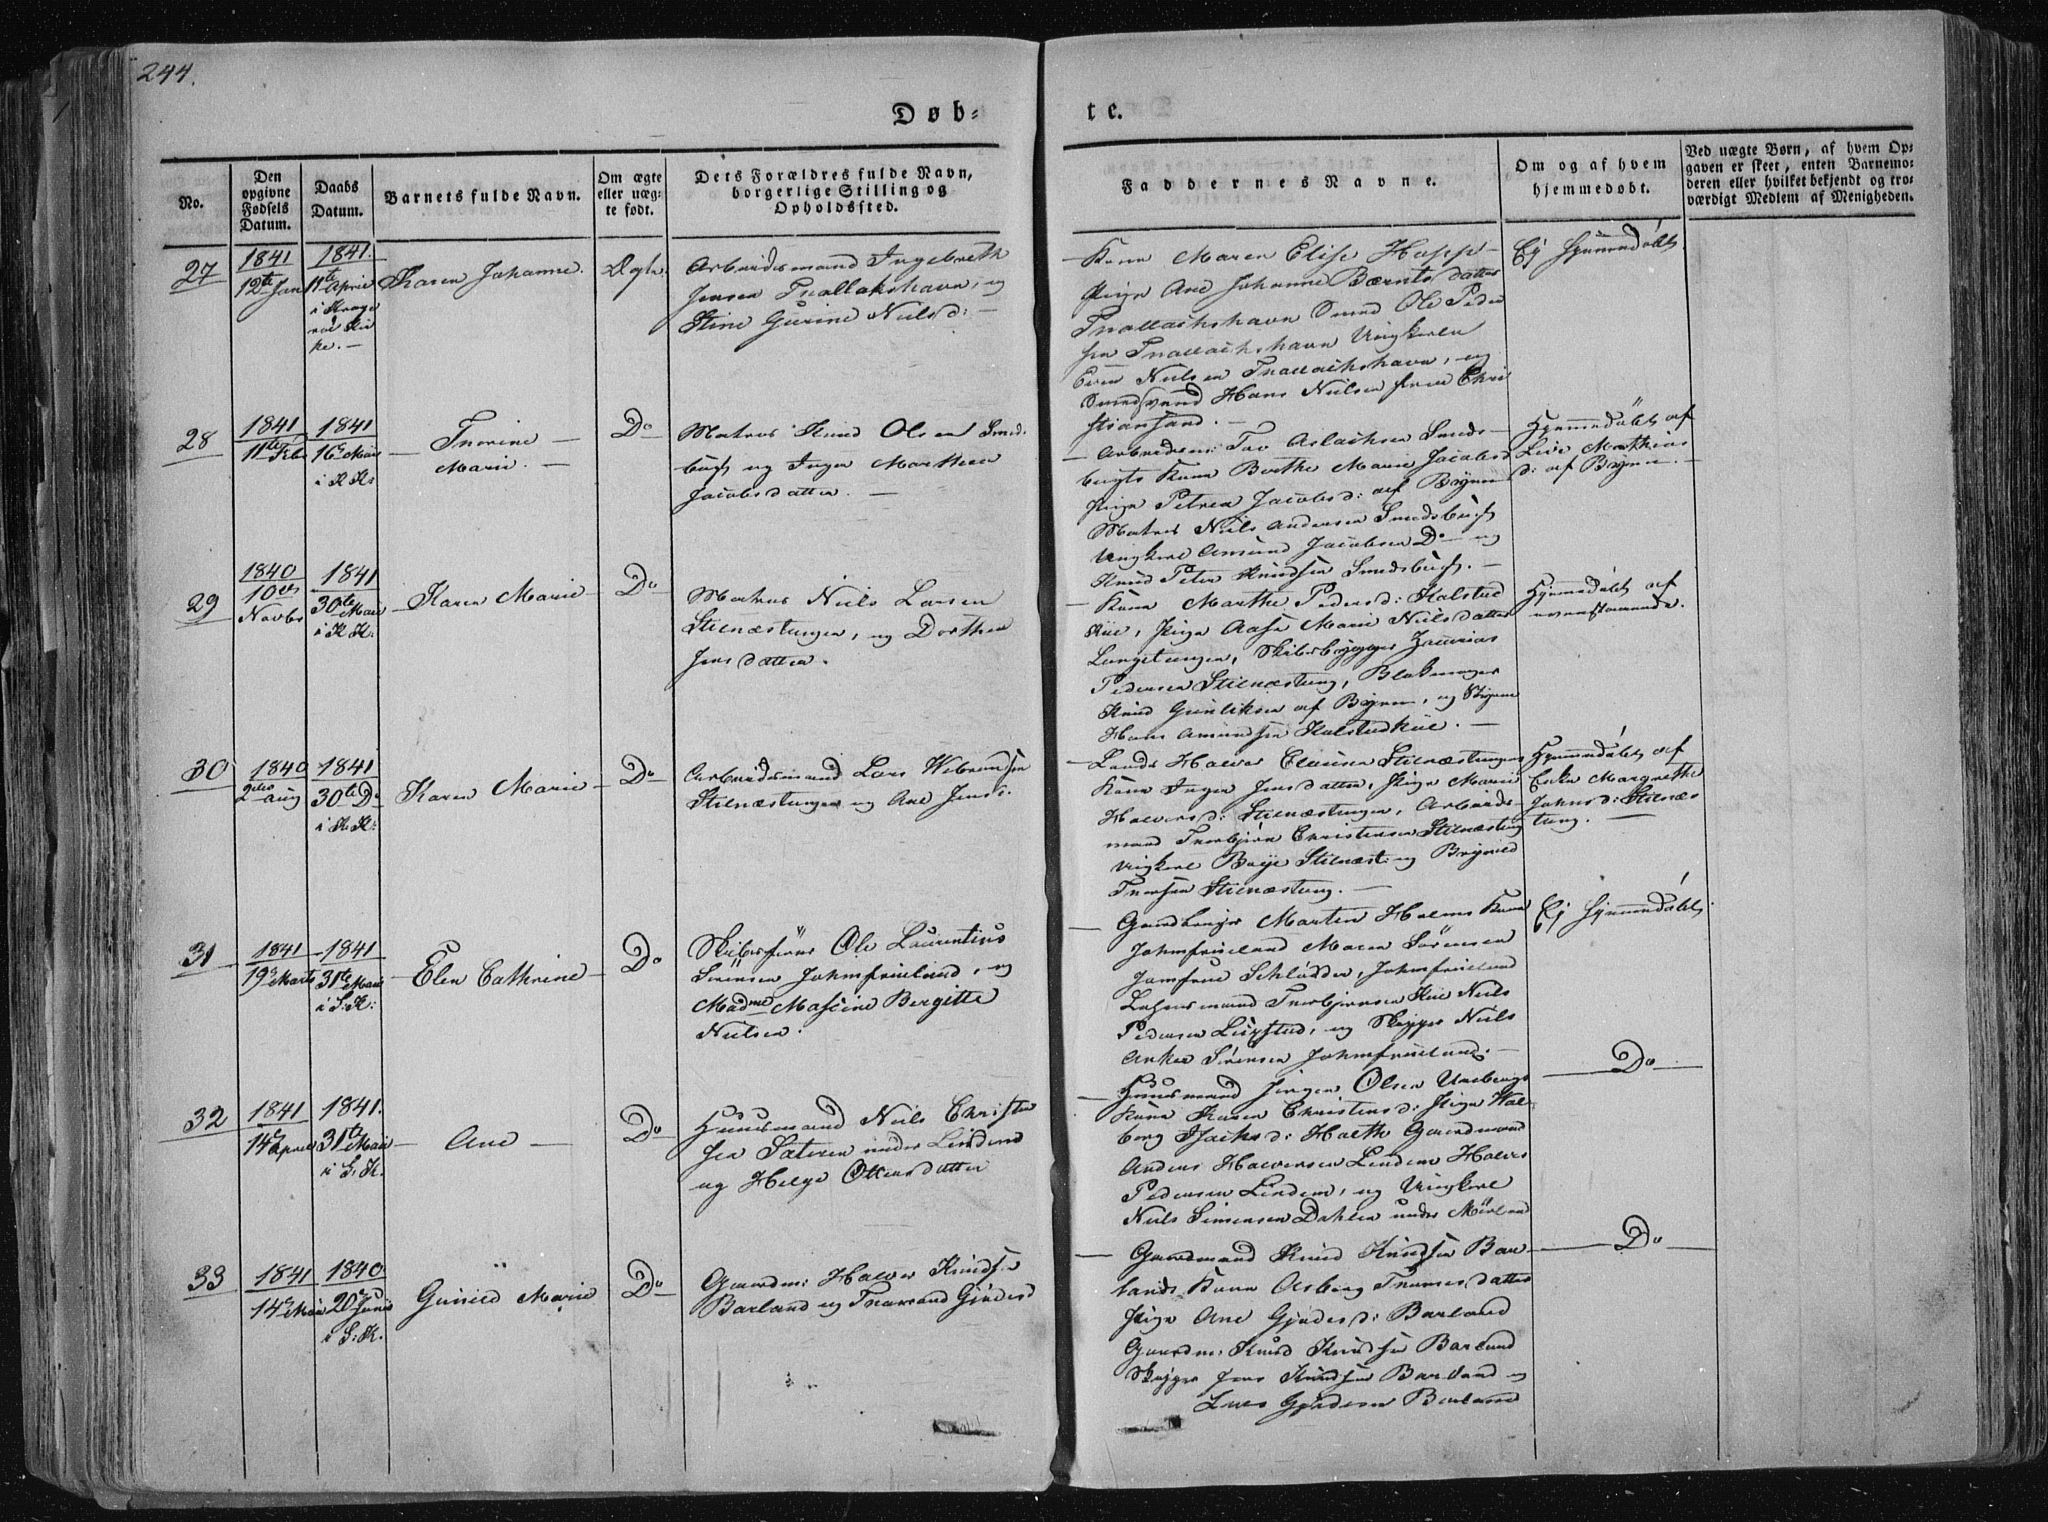 244.
Døb-
te.
No.
Den opgivne Fødsels Datum.
Daabs Datum.
Barnets fulde Navn.
Om ægte eller uægte født.
Dets Forældres fulde Navn, borgerlige Stilling og Opholdssted.
Faddernes Navne.
Om og af hvem hjemmedøbt.
Ved uægte Børn, af hvem Opgaven er skeet, enten Barnemoderen eller hvilket bekjendt og troværdigt Medlem af Menigheden.
27
1841
12te Jan
1841.
11te April
i Krage
röe Kir
ke. —
Karen Johanne.
Ægte
Arbeidsmand Ingebreth
Jensen Tnallakshavn, og
Stine Gurine Nielsd: —
Kone Maren Elise
Pige Ane Johanne Bærntsdatter
Ole Peder
sen
Even Nielsen
Hans Nielsen fra Chri
stiansand. —
Ej hjemmedöbt
28
1841
11te Feb
1841
16e Mai
i K K:
— Thorine —
Marie. —
Do
Matros Knud Olsen Smed
bugt og Inger Marthea
Jacobsdatter. —
— Arbeidsm: Tor Aslachsen Smeds
bugts Kone Berthe Marie Jacobsd
Pige Petrea Jacobsd: af Byen
Matros Niels Andersen Smedsbugt
Ungkarl Amund Jacobsen Do og
Knud Peter Knudsen Smedsbugt. —
Hjemmedöbt af
Live Mathias
d: af Byen. —
29
1840
10de
Novbr
1841
30te Mai
i K K.
— Karen Marie —
Do
Matros Niels Larsen
Stenæstangen, og Dorthea
Jensdatter.
— Kone Marthe Pedersd: Kalstad
Kiie, Pige Aase Marie Nielsdatter
Langetangen, Skibsbygger Zacarias
Pedersen Stenæstang, Blokmager
Knud Gunliksen af Byen, og
Hans Amundsen Kalstadkiie. —
Hjemmedöbt af
ovenstaaende.
30
1840
2den Aug
1841
30te Do
i K. K:
Karen Marie —
Do
Arbeidsmand Lars Webran sen
Stenæstangen og Ane Jensd.
— Lods Halvor Clausen Stenæstangens
Kone Inger Jensdatter, Pige Marie
Halvorsd: Stenæstangen, Arbeids-
mand Thorbjörn Christensen Stenæstang
Ungkarl Boye Stenæst: og Brynild
Thorsen Stenæstang. —
Hjemmedöbt af
Margrethe
Johnsd: Stenæs
tang. —
31
1841
19e Marts
1841
31te Mai
i S. K:
— Elen Cathrine —
Do
Skibsförer Ole Laurentius
Sörensen Jomfrueland, og
Madme Mascine Bergitte
Nielsen.
— Gaardbruger Marten Holms Kone
Jomfrueland Maren Sörensen
Jomfrue Schlödder, Jomfrueland
Thorbjornsen Kiie Niels
Pedersen, og Skipper Niels
Anker Sörensen Jomfrueland. —
Ej hjemmedöbt
32
1841
14e April
1841.
31te Mai
i S. K.
— Ane —
Do
Huusmand Niels Christen
sen Sateren under Lindem
og Helge Ottersdatter
— Huusmand Jörgen Olsen
Kone Karen Christensd: Pige Wal
borg Isachsd: Gaardmand
Anders Halvorsen Lindem Halvor
Pedersen Lindem, og Ungkarl
Niels Simonsen Dahlen under Mörland
Do
33
1841
14e Mai
1840
20e Junii
i S: K.
Gunild Marie
Do
Gaardm: Halvor Knudsen
Barland og Thorand Gjordsd
— Gaardmand Knud Knudsen Bar
lands Kone Asborg Thomesdatter
Pige Ane Gjordsd: Barland
Gaardm: Knud Knudsen Barland
Skipper Jens Knudsen Barland og
Lars Gjordsen Barland
Do